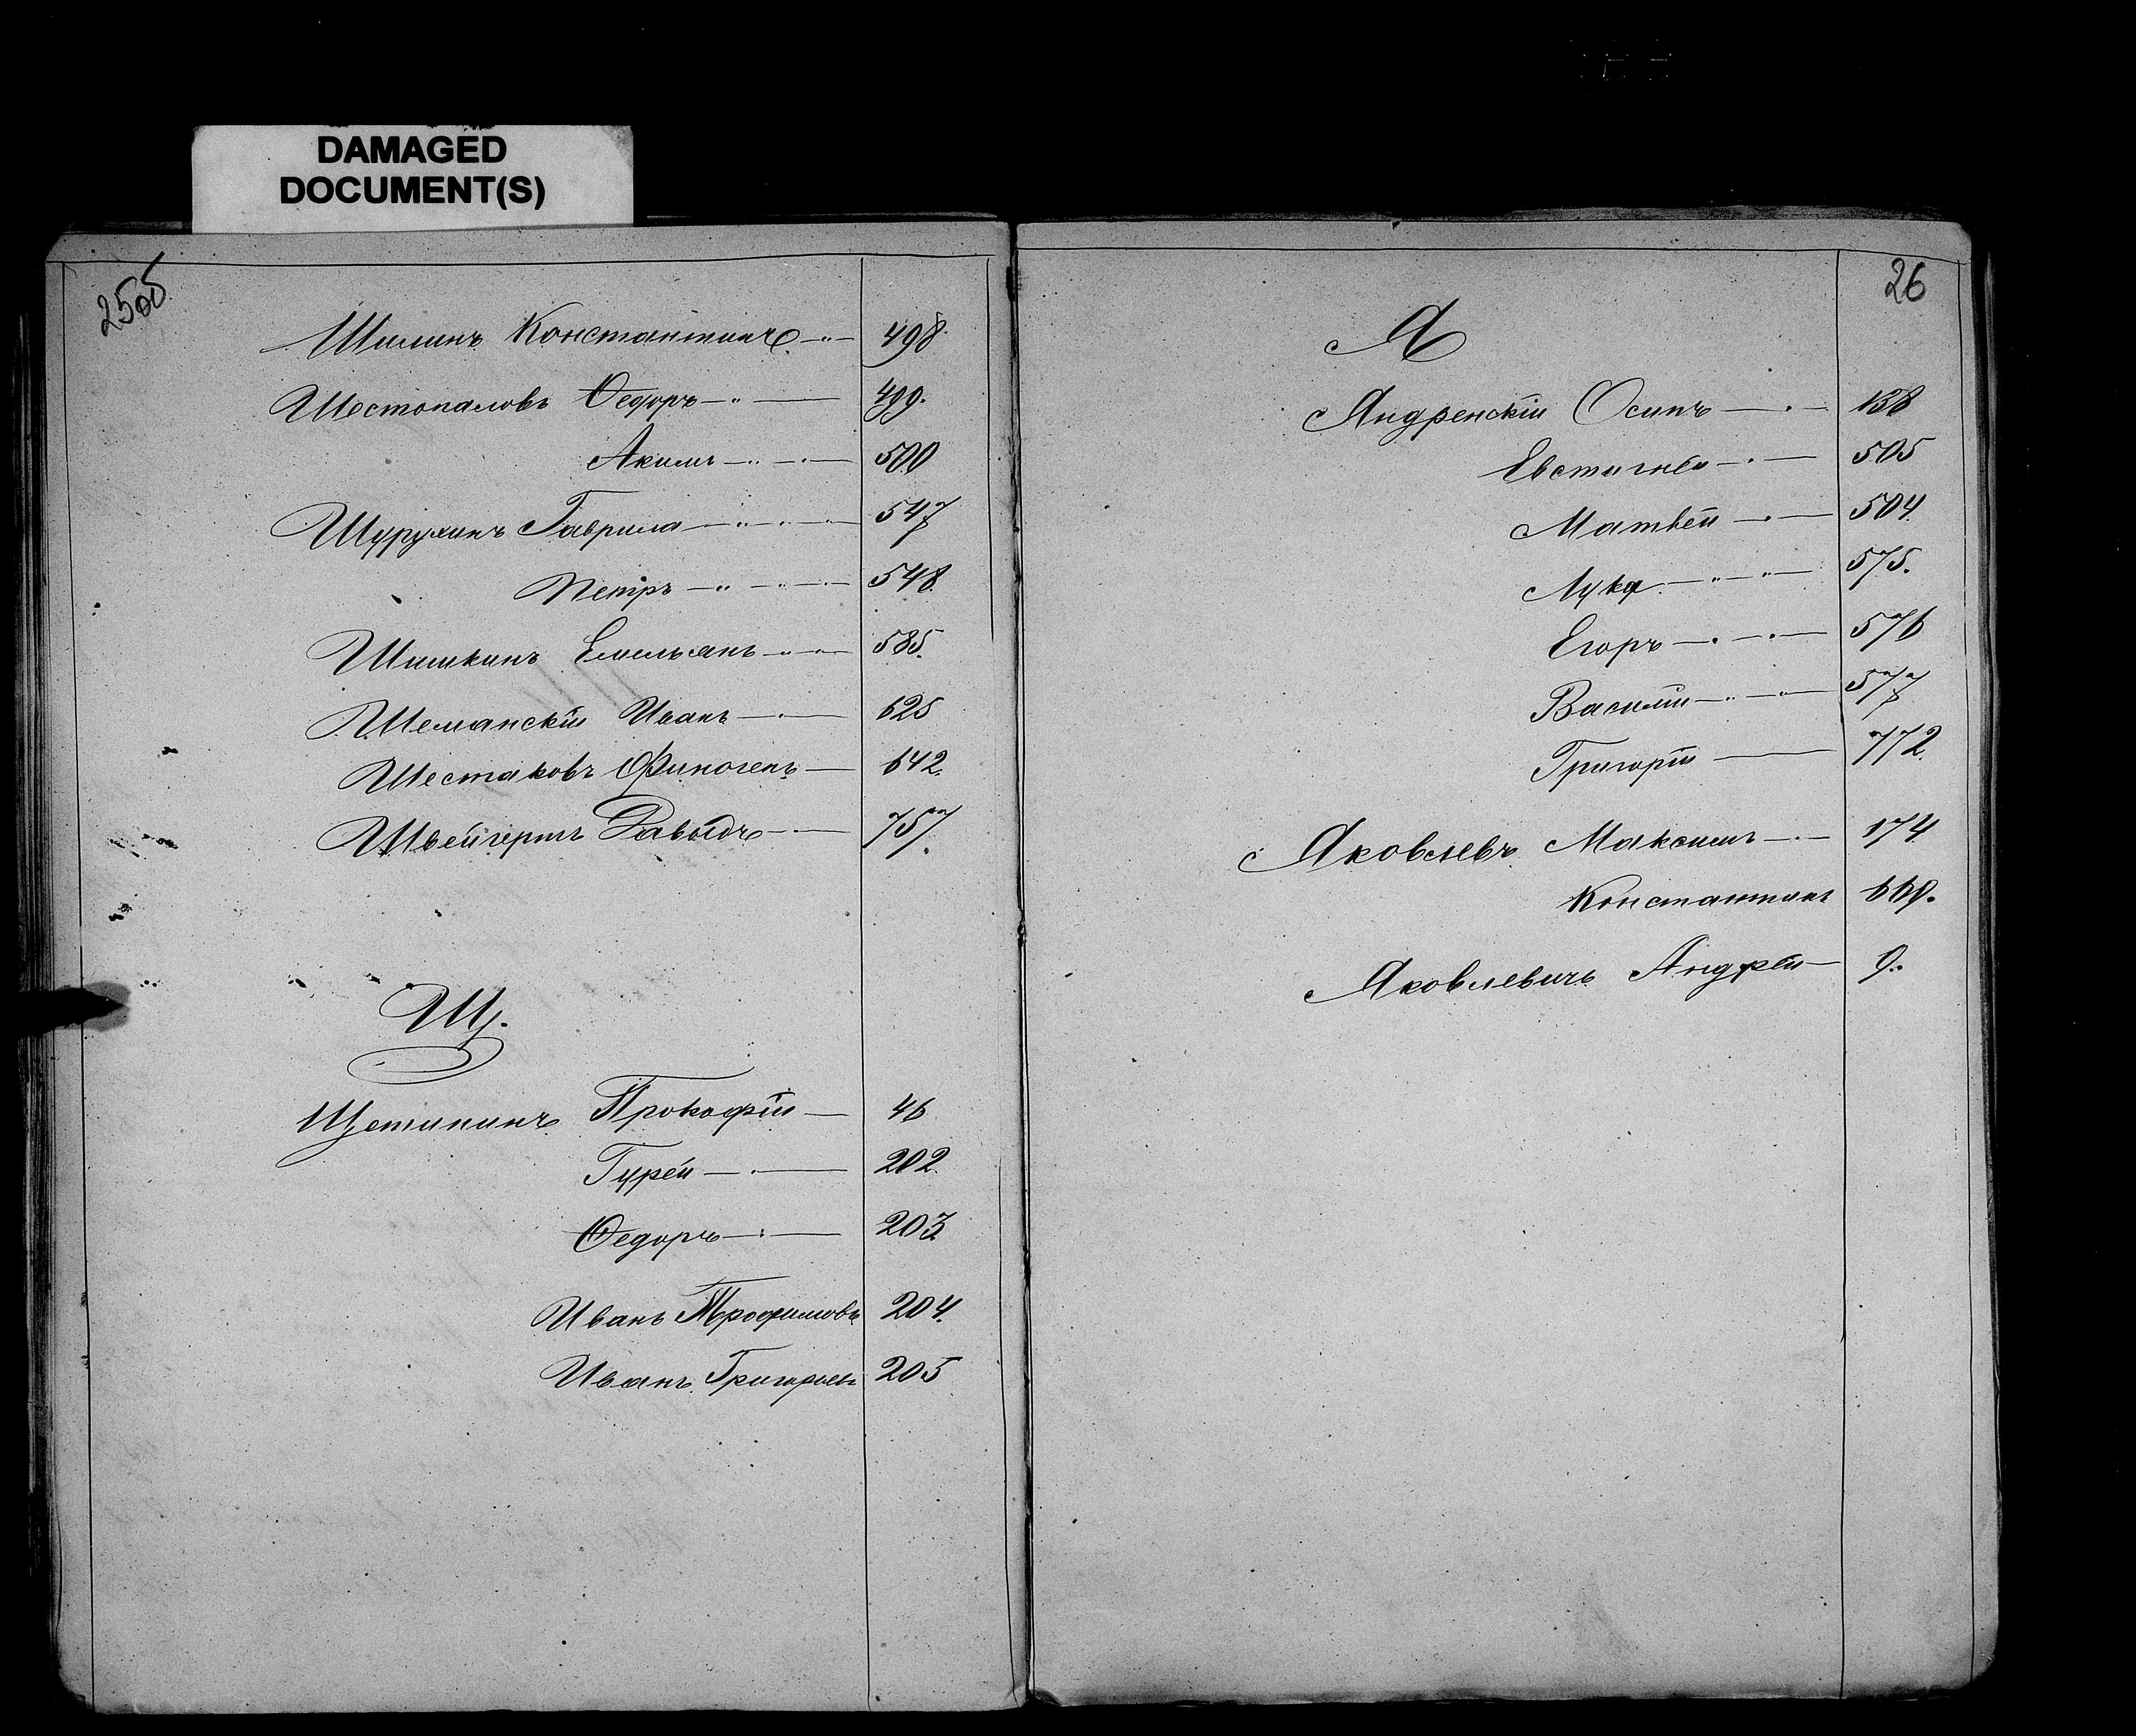 DAMAGED
DOCUMENT(S)
25об
Шилинъ Константинъ 498
Шестопаловъ Ѳедоръ 499.
Акимъ 500
Шурухинъ Гаврила 547
Петръ 548
Шишкинъ Емельянъ 585.
Шеманскій Иванъ 625
Шестаковъ Финогенъ 642.
Швейгертъ Давыдъ 757.
Щ.
Щетининъ Прокофій 46
Гурей 202
Ѳедоръ 203
Иванъ Трофимовъ 204.
Иванъ Григорьевъ 205
26
Я
Яндренскій Осипъ 138
Евстигнѣй 505
Матвѣй 504
Лука 575.
Егоръ 576
Василій 577
Григорій 772
Яковлевъ Максимъ 174
Константинъ
Яковлевичъ Андрей 9.